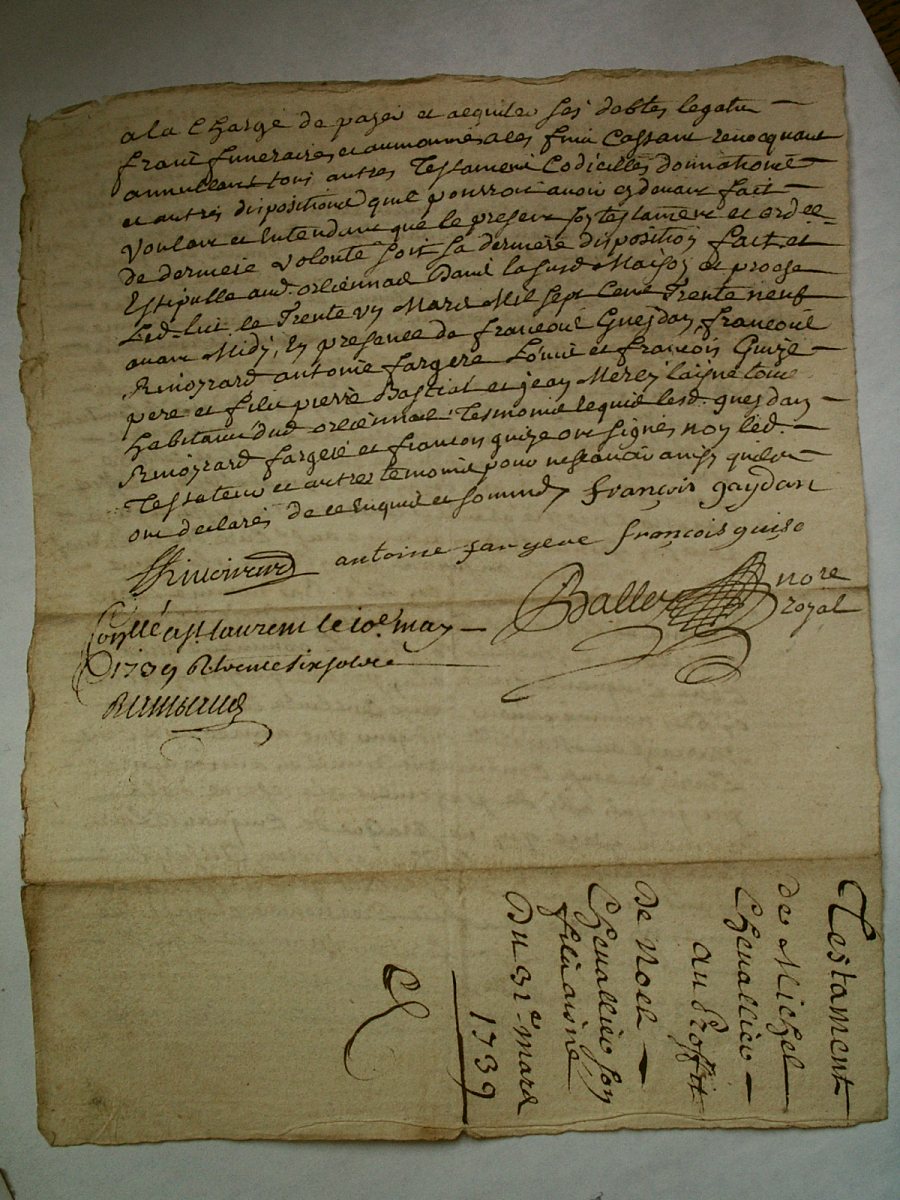 a la Charge de payer et acquiter ses debtes legatz
fraix funeraires et aumonnes a ces fins Cassant revocquant
annullant tous autres Testament Codicilles donnations
et autres dispositions quil pourroit avoir cy devant fait
voulant et entendant que le present soy testament et ord.ce
de derniere volonté soit sa derniere disposition fait et
Estipullé aud. orliennas Dans la susd. Maisoy et
le Trente uy Mars Mil sept Cent Trente neuf
avant Midy, En presence de françois Gueydan, françois
antoine fargere Louis et françois Guize
pere et fils pierre Bastial et jean Merley laisne tous
habitans dud orliennas Tesmoins lequels lesd. gueydan
fargere et françois guize ont signés noy led.
Testateur et autres temoins pour ne scavoir ainsy quils
ont declarés de ce Enquis et sommés françois gaydan
antoine fargere françois guise
Baller nore
royal
Conllé a st. laurent le 10e. may
1739 R trente six sols
Testament
de Michel
Chevallier
au Proffit
De Noel
Chevallier soy
fils aisné
Du 31e. mars
1739